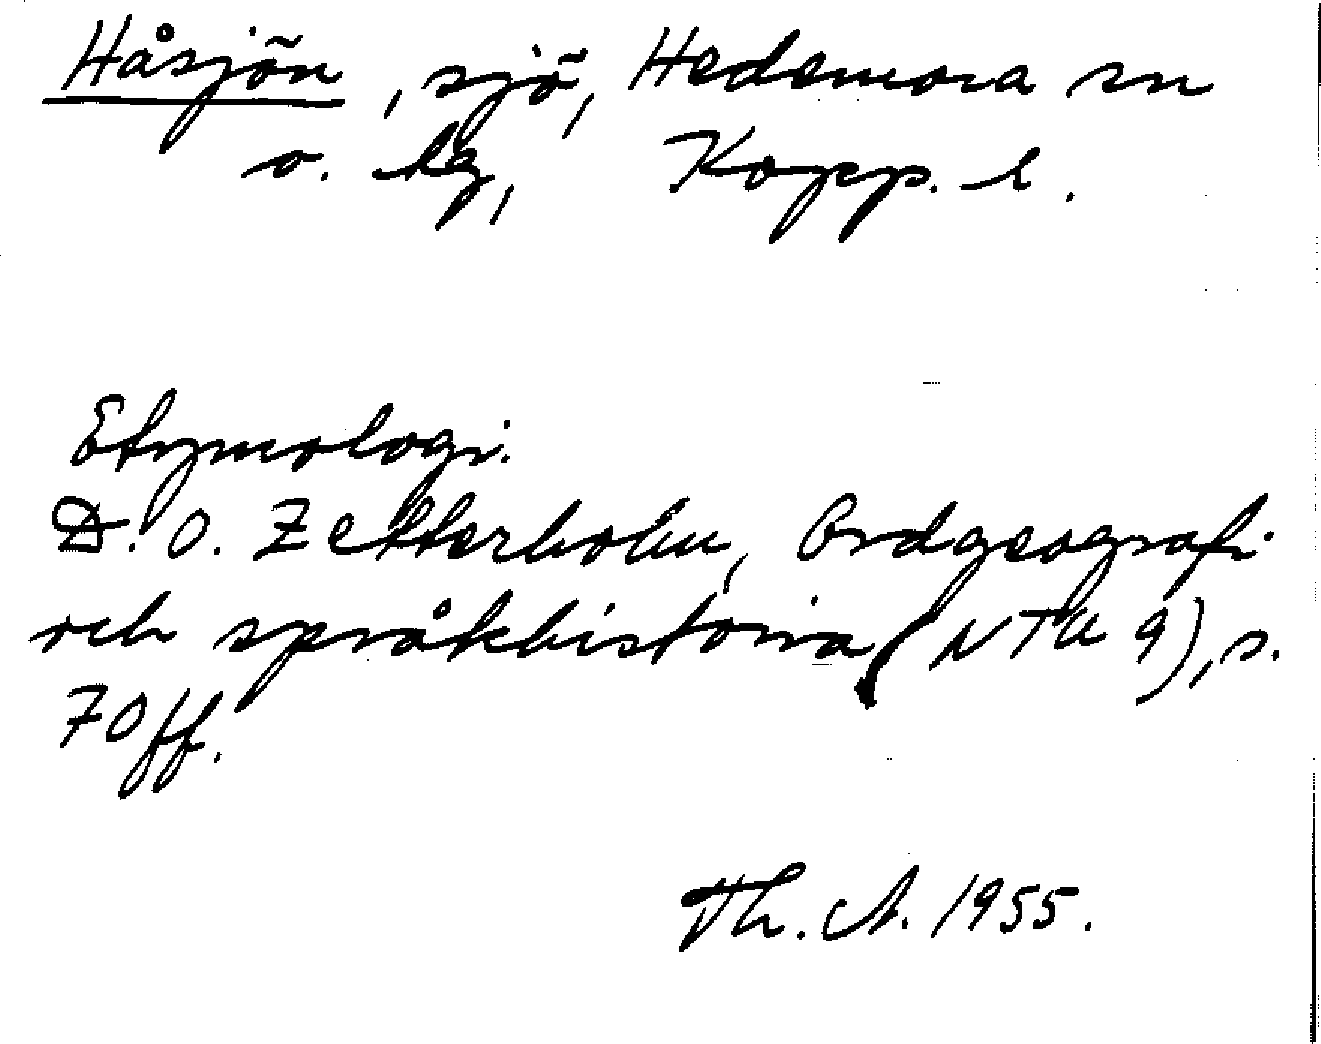 Håsjön, sjö, Hedemora sn
o. lg, Kopp. l.
Etymologi.
D. O. Zetterholm, Ordgeografi
och språkhistoria (NTU 9), s.
70 ff.
Th. A. 1955.